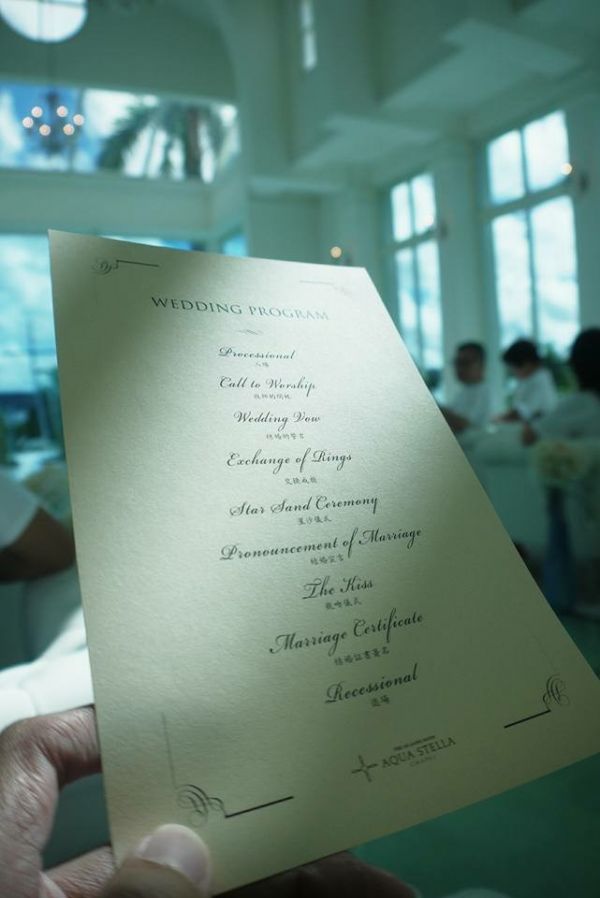 WEDDING PROGRAM
Processional
入場
Call to Worship
Wedding Vow
結婚的誓言
Exchange of Rings
交換戒指
Star Sand Ceremony
星沙儀式
Pronouncement of Marriage
結婚宣言
The Kiss
親吻儀式
Marriage Certificate
結婚証書簽名
Recessional
退場
AQUA STELLA